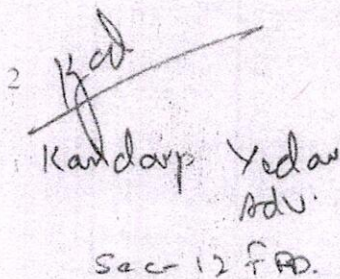 2
Kandarp Yadav
Adv.
Sec-12 FBD